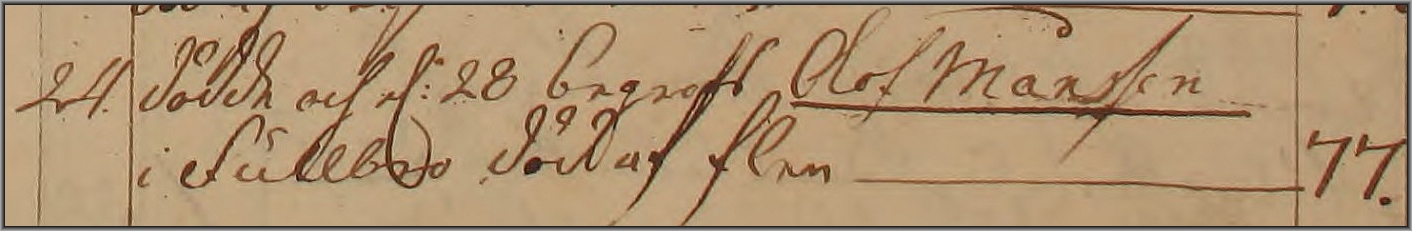 24. dödde och d: 28 begrofs Olof Månsson
i Kullbro död af flen 77.